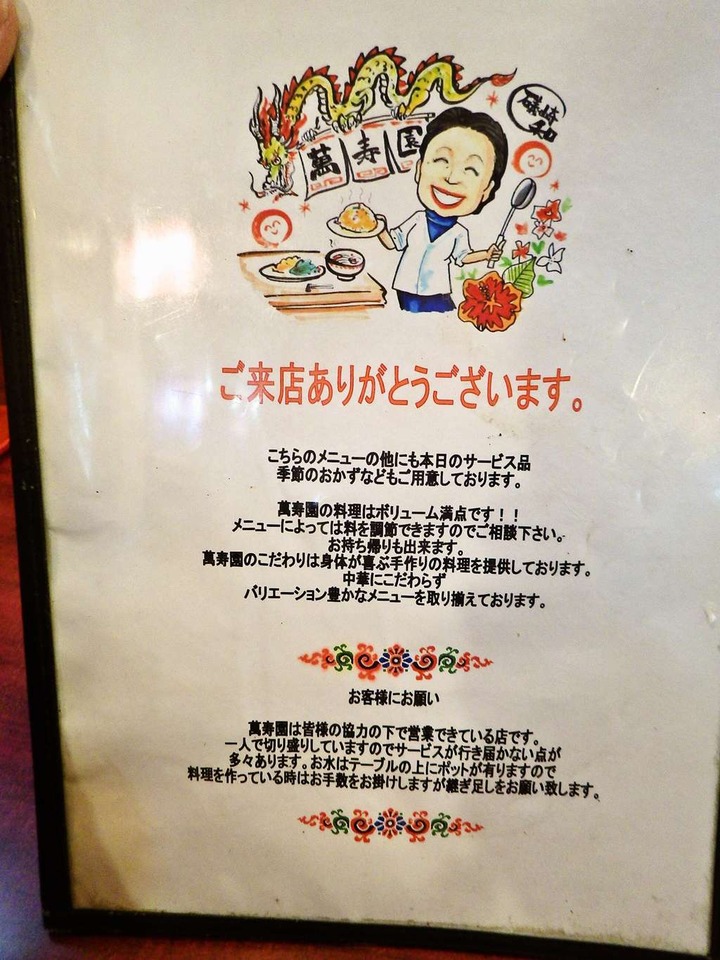 萬寿園
磯崎
和
ご来店ありがとうございます。
こちらのメニューの他にも本日のサービス品
季節のおかずなどもご用意しております。
萬寿園の料理はボリューム満点です！！
メニューによっては料を調節できますのでご相談下さい。
お持ち帰りも出来ます。
萬寿園のこだわりは身体が喜ぶ手作りの料理を提供しております。
中華にこだわらず
バリエーション豊かなメニューを取り揃えております。
お客様にお願い
萬寿園は皆様の協力の下で営業できている店です。
一人で切り盛りしていますのでサービスが行き届かない点が
多々あります。お水はテーブルの上にポットが有りますので
料理を作っている時はお手数をお掛けしますが継ぎ足しをお願い致します。